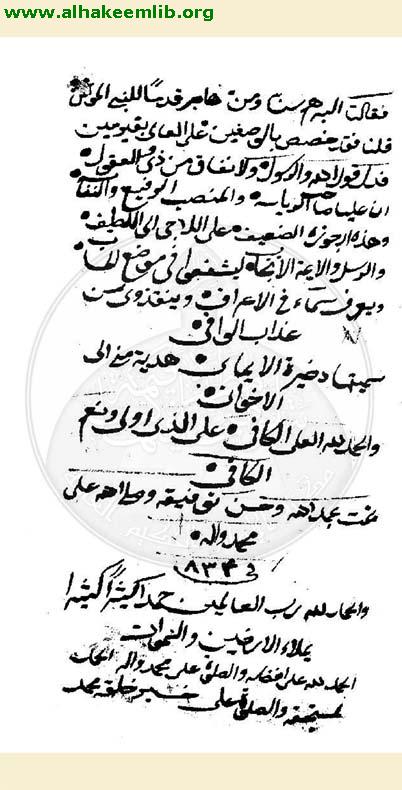 www.alhakeemlib.org
فقالت البدهر سنا ومن هاجر قدسا للنبي
قلنا فقد خصص بالوصفين على العاى بقيومين
فدل قول الله والرسول ولا نفاق من ذوى العقول
ان عليا صاحب الرياسه والمنصب الرفيع
وهذه ارجوزة الضعيف على اللاجى الى اللطيف
والرسل والايمة الانجاب لشفعوا في موضع
ويعرف سماء في الاعراف وينقذونى من
عذاب الوافى
سميتها ذخيرة الايمان هدية منى الى
الاخوان
والحمد لله العلى الكافى على الذى اولى ونعم
الكافى
تمت بحمد الله وحسن توفيقه وصلى الله على
محمد واله
فى ٨٣٤
والحمد لله رب العالمين حمدا كثيرا كثيرا
يملاء الارضين والسموات
الحمد لله على افضاله والصلوة على محمد واله الحمد
لمستحقه والصلوة على خير خلقه محمد